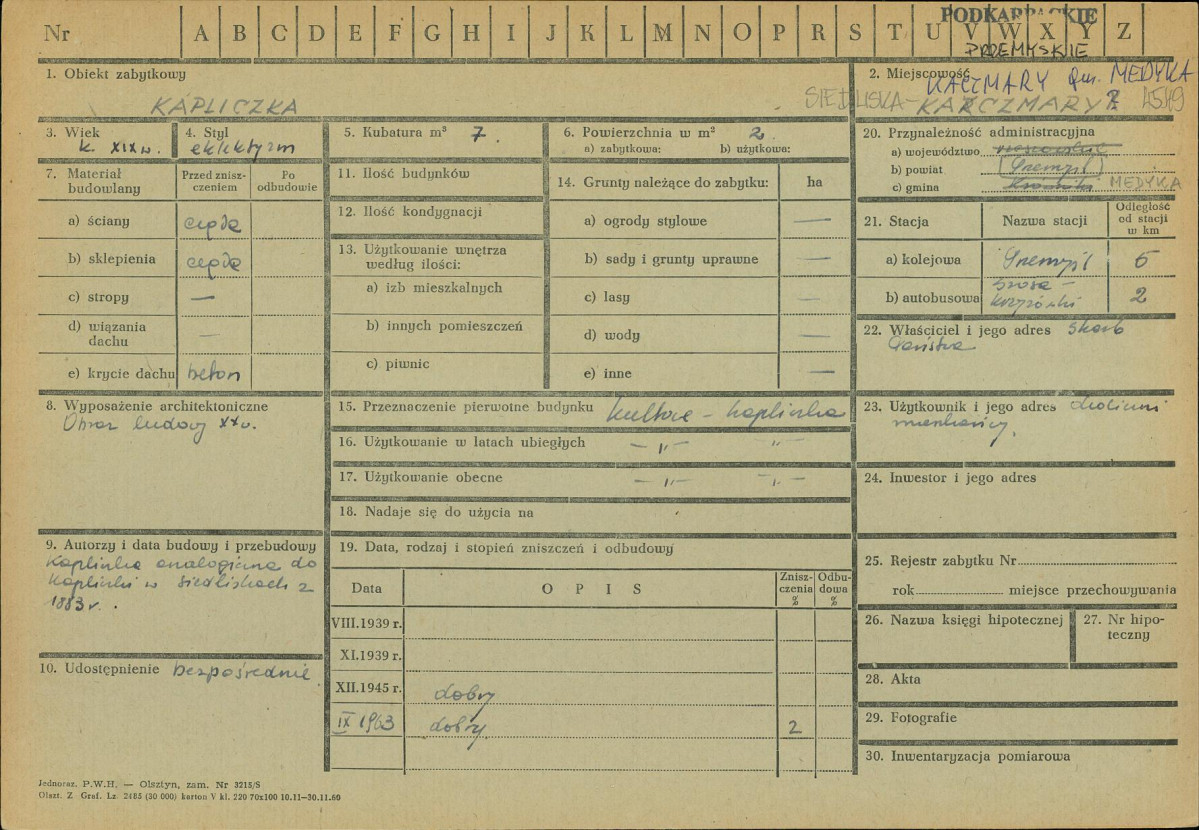 Nr A B C D E F G H I J K L M N O P R S T U V W X Y Z
PODKARPACKIE
PRZEMYSKIE
1. Obiekt zabytkowy
KAPLICZKA
2. Miejscowość
KACZMARY gm. MEDYKA
SIEDLISKA - KACZMARY 4549
3. Wiek
k. XIX w.
4. Styl
eklektyzm
5. Kubatura m³ 7.
6. Powierzchnia w m² 2.
a) zabytkowa: b) użytkowa:
7. Materiał budowlany
Przed zniszczeniem
Po odbudowie
a) ściany cegła
b) sklepienia cegła
c) stropy —
d) wiązania dachu —
e) krycie dachu beton
8. Wyposażenie architektoniczne
Obraz ludowy XX w.
9. Autorzy i data budowy i przebudowy
Kapliczka analogiczna do
kapliczki w Siedliskach z
1883 r.
10. Udostępnienie bezpośrednie
11. Ilość budynków
12. Ilość kondygnacji
13. Użytkowanie wnętrza
według ilości:
a) izb mieszkalnych
b) innych pomieszczeń
c) piwnic
14. Grunty należące do zabytku: ha
a) ogrody stylowe —
b) sady i grunty uprawne —
c) lasy —
d) wody —
e) inne —
15. Przeznaczenie pierwotne budynku kultowe - kapliczka
16. Użytkowanie w latach ubiegłych —„— —„—
17. Użytkowanie obecne —„— —„—
18. Nadaje się do użycia na
19. Data, rodzaj i stopień zniszczeń i odbudowy
Data OPIS Zniszczenia % Odbudowa %
VIII.1939 r.
XI.1939 r.
XII.1945 r. dobry
IX 1963 dobry 2
20. Przynależność administracyjna
a) województwo rzeszowskie
b) powiat Przemyśl
c) gmina MEDYKA
21. Stacja Nazwa stacji Odległość od stacji w km
a) kolejowa Przemyśl 6
b) autobusowa szosa - 2
22. Właściciel i jego adres Skarb
Państwa
23. Użytkownik i jego adres okoliczni
mieszkańcy.
24. Inwestor i jego adres
25. Rejestr zabytku Nr
rok miejsce przechowywania
26. Nazwa księgi hipotecznej
27. Nr hipoteczny
28. Akta
29. Fotografie
30. Inwentaryzacja pomiarowa
Jednoraz. P.W.H. — Olsztyn, zam. Nr 3215/S
Olszt. Z Graf. Lz 2485 (30 000) karton V kl. 220 70x100 10.11—30.11.60